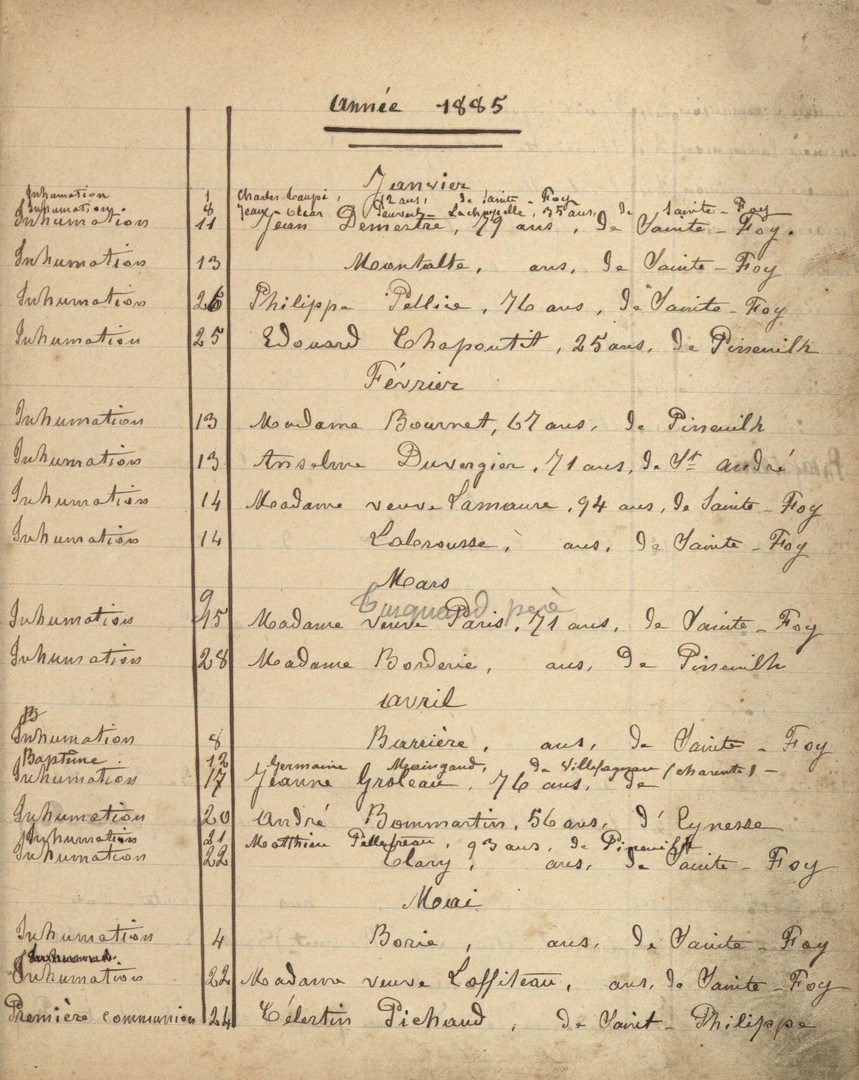 Année 1885
Janvier
Inhumation 1 Charles Coupé, 12 ans, de Sainte-Foy
Inhumation 8 Jean 35 ans, de Sainte-Foy
Inhumation 11 Jean Demestre, 79 ans, de Sainte-Foy.
Inhumation 13 Montalte, ans, de Sainte-Foy
Inhumation 26 Philippe Pellice, 76 ans, de Sainte-Foy
Inhumation 25 Edouard Chapoutit, 25 ans, de Pineuilh
Février
Inhumation 13 Madame Bournet, 67 ans, de Pineuilh
Inhumation 13 Anselme Duvergier, 71 ans, de St André
Inhumation 14 Madame veuve Lamaure, 94 ans, de Sainte-Foy
Inhumation 14 Labrousse, ans, de Sainte-Foy
Mars
9 père
Inhumation 15 Madame veuve Paris, 71 ans, de Sainte-Foy
Inhumation 28 Madame Borderie, ans, de Pineuilh
Avril
B
Inhumation 8 Barrière, ans, de Sainte-Foy
Baptême 12 Germaine Maingaud, de Villefagnan (charente) -
Inhumation 17 Jeanne Groleau, 76 ans, de
Inhumation 20 André Bommartin, 56 ans, d'Eynesse
Inhumation 21 Matthieu 93 ans, de Pineuilh
Inhumation 22 Clary, ans, de Sainte-Foy
Mai
Inhumation 4 Borie, ans, de Sainte-Foy
Inhumation 22 Madame veuve Laffiteau, ans, de Sainte-Foy
Première communion 24 Célestin Pichaud, de Saint-Philippe